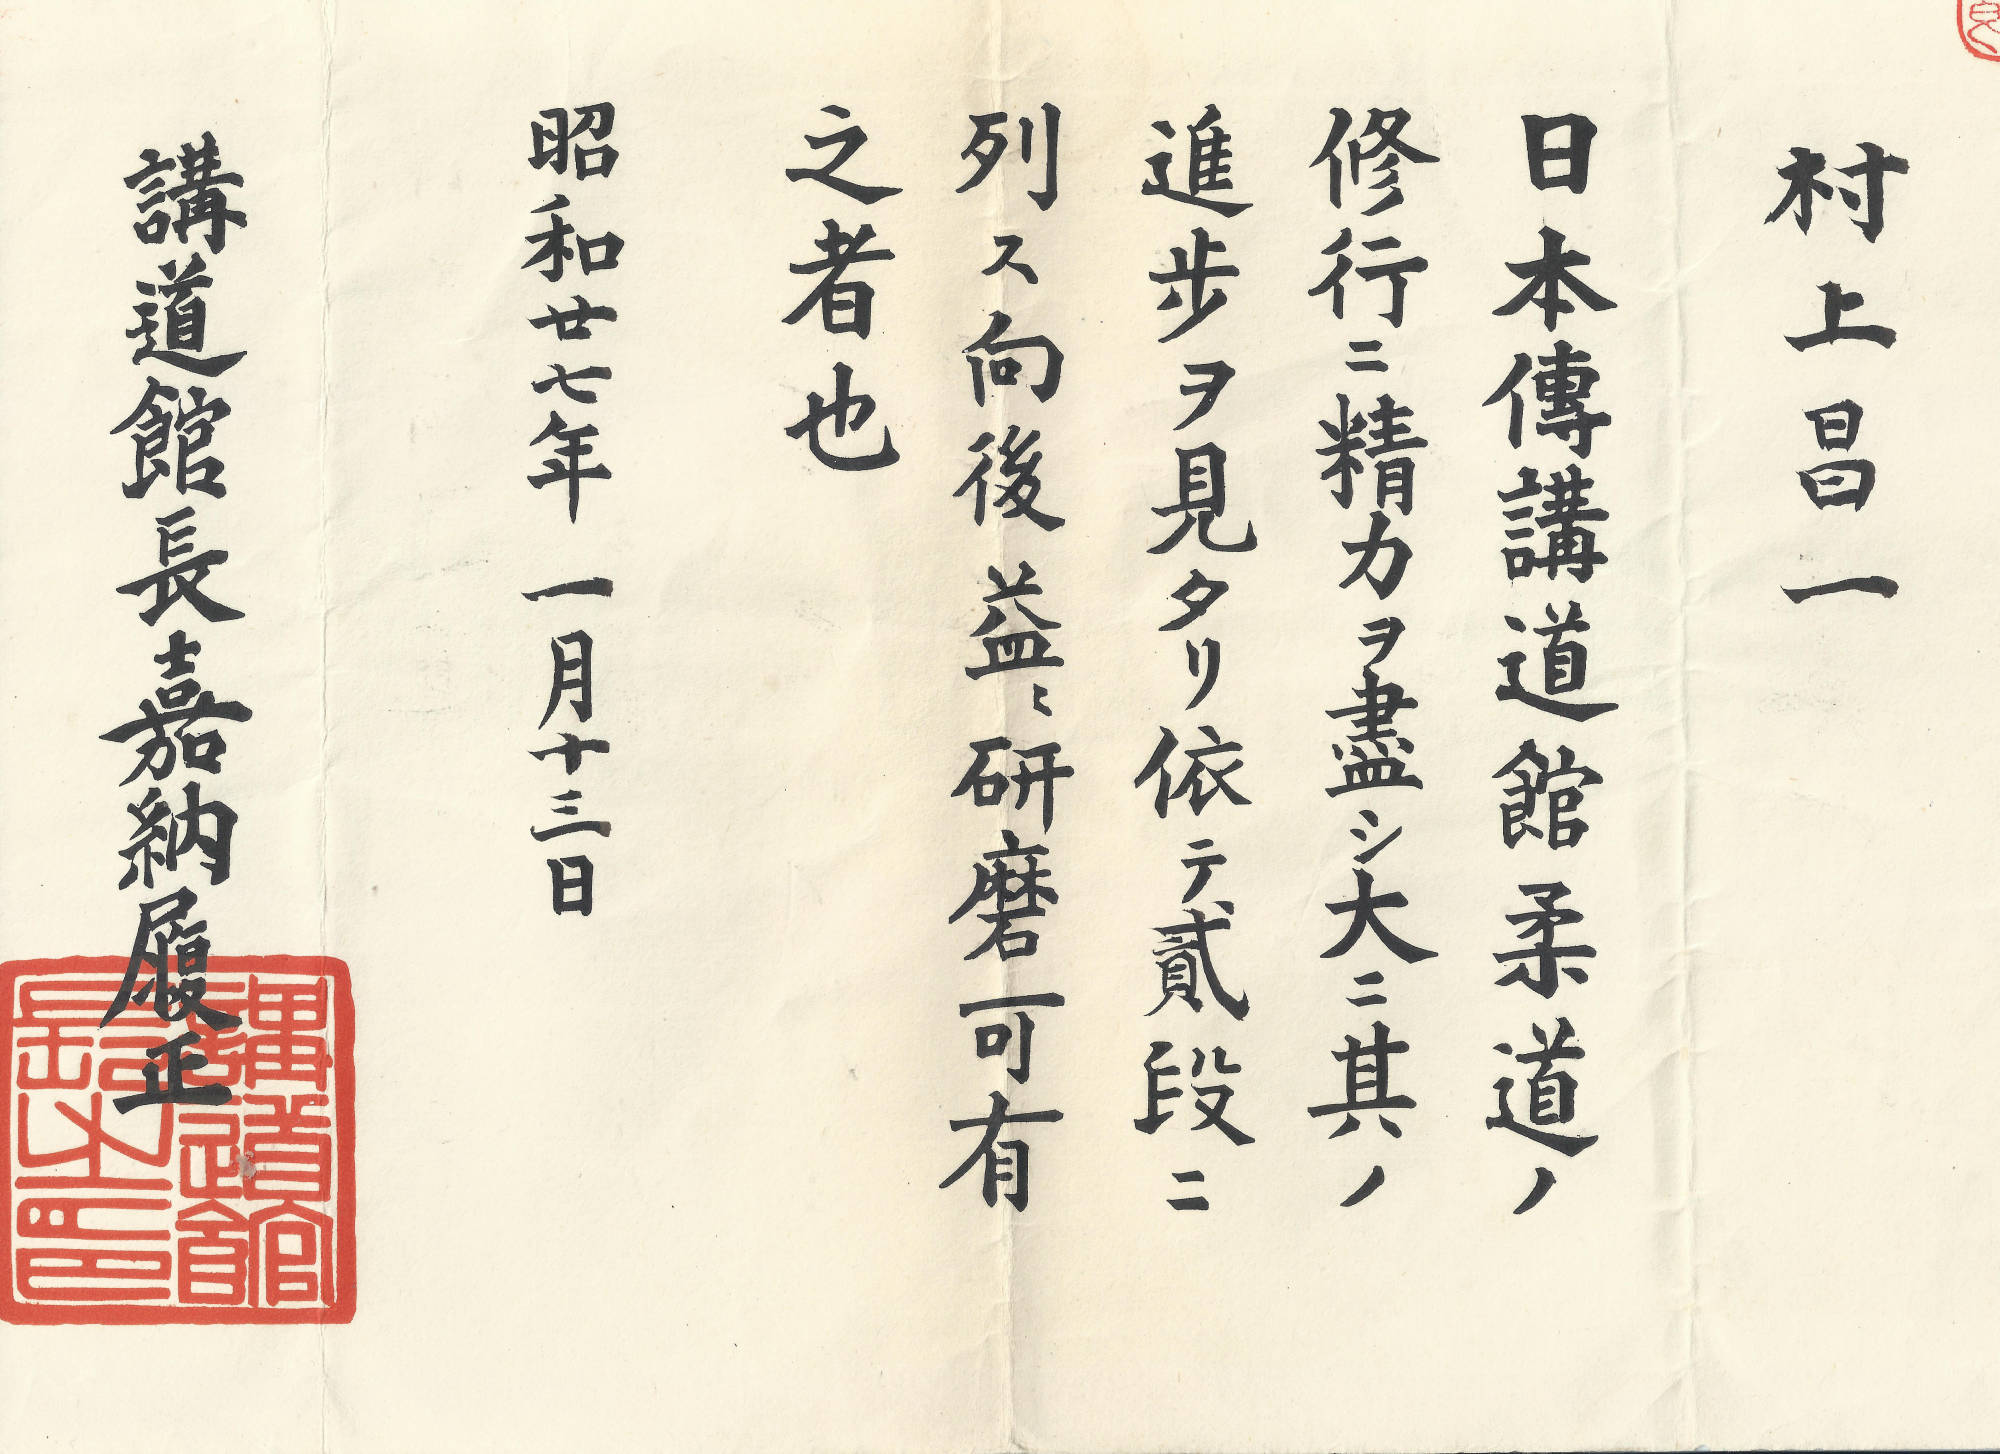 村上昌一
日本傳講道館柔道ノ
修行ニ精力ヲ盡シ大ニ其ノ
進歩ヲ見タリ依テ貳段ニ
列ス向後益〻研磨可有
之者也
昭和廿七年一月十三日
講道館長嘉納履正
講道館
長之印